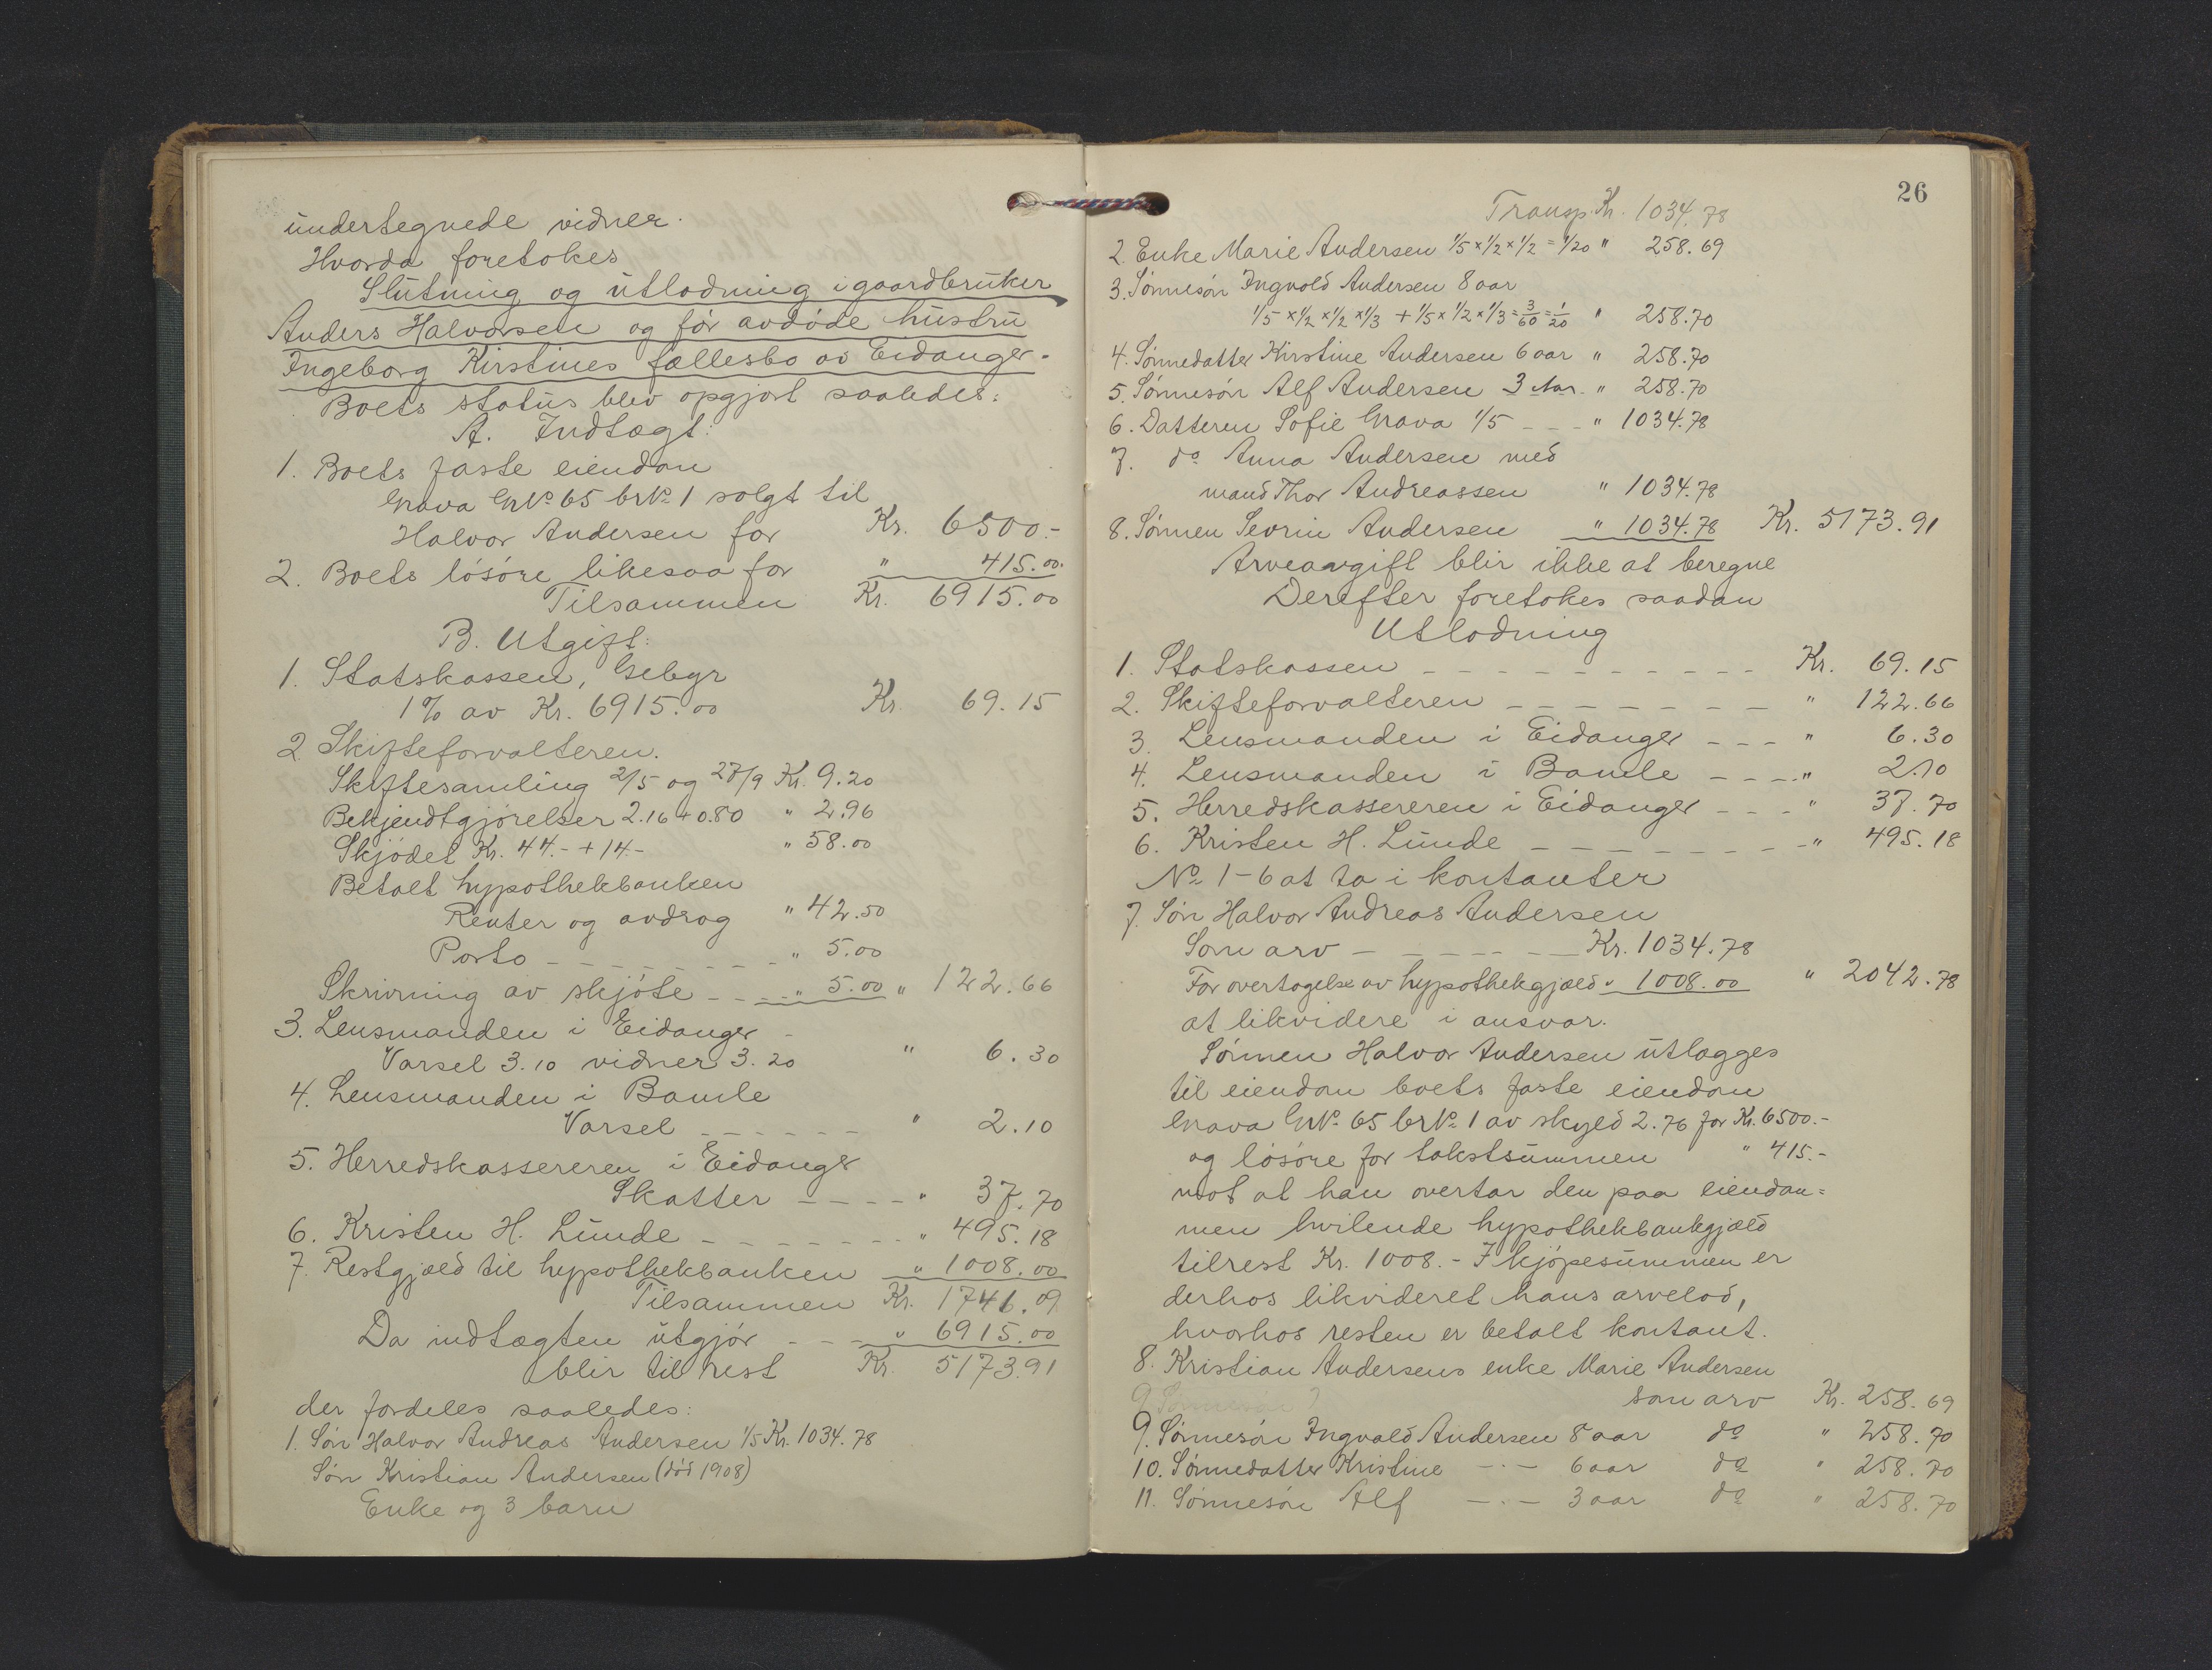 undertegnede vidner.
Hvorda foretokes
Slutning og utlodning i gaardbruker
Anders Halvorsen og før avdøde hustru
Ingeborg Kirstines fællesbo av Eidanger.
Boets status blev opgjort saaledes:
A. Indtægt:
1. Boets faste eiendom
Grava GrNo 65 brNo 1 solgt til
Halvor Andersen for Kr. 6500.-
2. Boets løsøre likesaa for " 415.00.
Tilsammen Kr. 6915.00
B. Utgift:
1. Statskassen, Gebyr
1% av Kr. 6915.00 Kr. 69.15
2 Skifteforvalteren.
Skiftesamling 2/5 og 27/9 Kr. 9.20
Bekjendtgjørelser 2.16 + 0.80 " 2.96
Skjødet Kr. 44.- + 14.- " 58.00
Betalt hypothekbanken
Renter og avdrag " 42.50
Porto - - - - - - - " 5.00
Skrivning av skjøte - - - " 5.00 " 122.66
3. Lensmanden i Eidanger -
Varsel 3.10 vidner 3.20 " 6.30
4. Lensmanden i Bamle
Varsel - - - - - - " 2.10
5. Herredskassereren i Eidanger
Skatter - - - - " 37.70
6. Kristen H. Lunde - - - - - - - " 495.18
7. Restgjæld til hypothekbanken " 1008.00
Tilsammen Kr. 1741.09
Da indtægten utgjør - - - " 6915.00
blir til rest Kr. 5173.91
der fordeles saaledes:
1. Søn Halvor Andreas Andersen 1/5 Kr. 1034.78
Søn Kristian Andersen (død 1908)
Enke og 3 barn
26
Transp. Kr. 1034.78
2. Enke Marie Andersen 1/5 x 1/2 x 1/2 = 1/20 " 258.69
3. Sønnesøn Ingvold Andersen 8 aar
1/5 x 1/2 x 1/2 x 1/3 + 1/5 x 1/2 x 1/3 = 3/60 = 1/20 " 258.70
4. Sønnedatter Kirstine Andersen 6 aar " 258.70
5. Sønnesøn Alf Andersen 3 Aar. " 258.70
6. Datteren Sofie Grava 1/5 - - - " 1034.78
7. do Anna Andersen med
mand Thor Andreassen " 1034.78
8. Sønnen Sevrin Andersen " 1034.78 Kr. 5173.91
Arveavgift blir ikke at beregne
Derefter foretokes saadan
Utlodning
1. Statskassen - - - - - - - - - - Kr. 69.15
2. Skifteforvalteren - - - - - - - - " 122.66
3. Lensmanden i Eidanger - - - " 6.30
4. Lensmanden i Bamle - - - - " 2.10
5. Herredskassereren i Eidanger - - - " 37.70
6. Kristen H. Lunde - - - - - - - - " 495.18
No 1-6 at ta i kontanter
7. Søn Halvor Andreas Andersen
Som arv - - - - - - Kr. 1034.78
For overtagelse av hypothekgjæld " 1008.00 " 2042.78
at likvidere i ansvar.
Sønnen Halvor Andersen utlægges
til eiendom boets faste eiendom
Grava GrNo 65 brNo 1 av skyld 2.76 for Kr. 6500.-
og løsøre for takstsummen " 415.-
mot at han overtar den paa eiendom=
men hvilende hypothekbankgjæld
tilrest Kr. 1008.- I kjøpesummen er
derhos likvideret hans arvelod,
hvorhos resten er betalt kontant.
8. Kristian Andersens enke Marie Andersen
som arv Kr. 258.69
9. Sønnesøn Ingvald Andersen 8 aar do " 258.70
10. Sønnedatter Kristine - . - 6 aar do " 258.70
11. Sønnesøn Alf - . - 3 aar do " 258.70